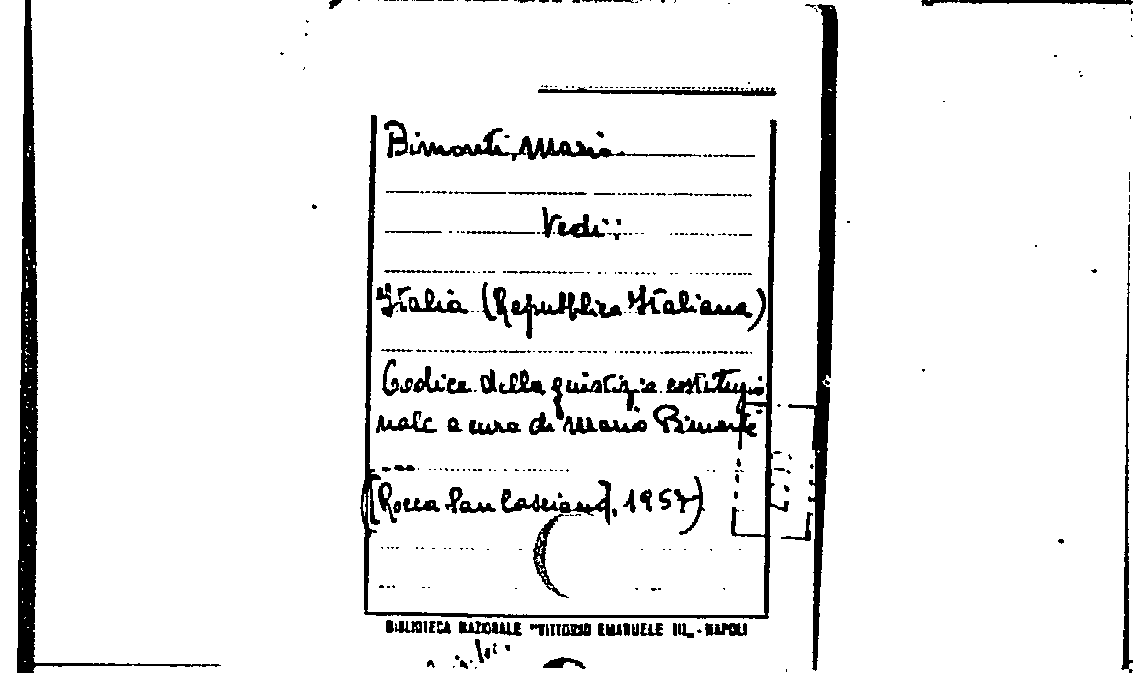 Bimonti, Mario.
Vedi:
Italia (Repubblica Italiana)
Codice della giustizia costituzio
nale a cura di Mario Bimonti
...
([Rocca San Casciano], 1957)
BIBLIOTECA NAZIONALE "VITTORIO EMANUELE III„ - NAPOLI